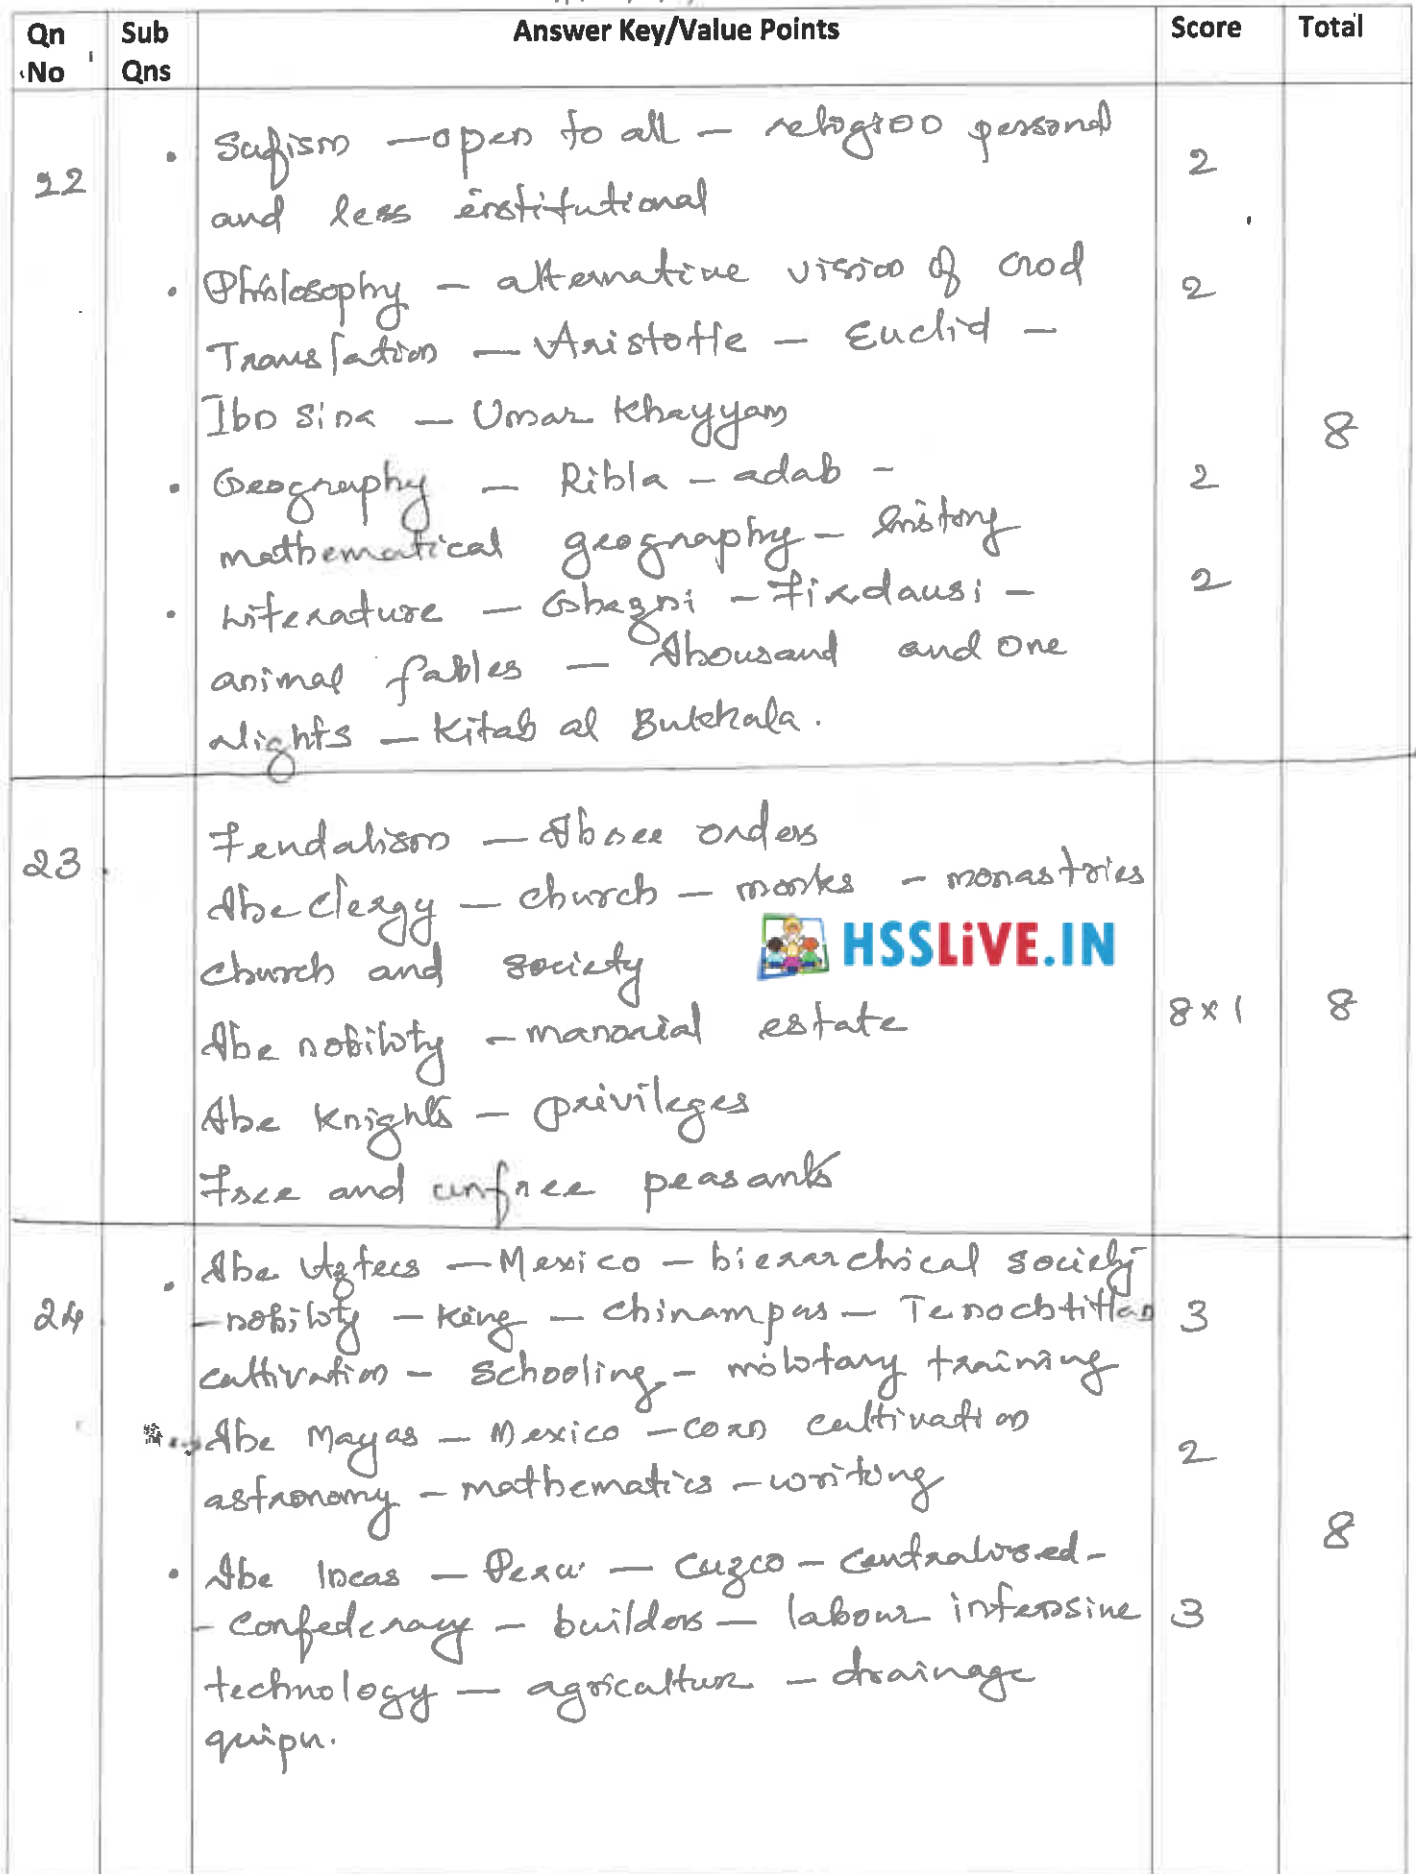 Qn No
Sub Qns
Answer Key/Value Points
Score
Total
22
• Sufism — open to all — religion personal 2
and less institutional
• Philosophy — alternative vision of God 2
Translation — Aristotle — Euclid —
Ibn Sina — Umar Khayyam
8
• Geography — Rihla — adab — 2
mathematical geography — history
• Literature — Ghazni — Firdausi — 2
animal fables — Thousand and One
Nights — Kitab al Bukhala.
23
Feudalism — Three orders
The Clergy — church — monks — monastries
HSSLiVE.IN
church and society
The nobility — manorial estate 8×1 8
The Knights — privileges
Free and unfree peasants
24
• The Aztecs — Mexico — hierarchical society
– nobility — King — chinampas — Tenochtitlan 3
cultivation — Schooling — military training
The Mayas — Mexico — corn cultivation
astronomy — mathematics — writing 2
8
• The Incas — Peru — Cuzco — centralised –
– Confederacy — builders — labour intensive 3
technology — agricultur — drainage
quipu.